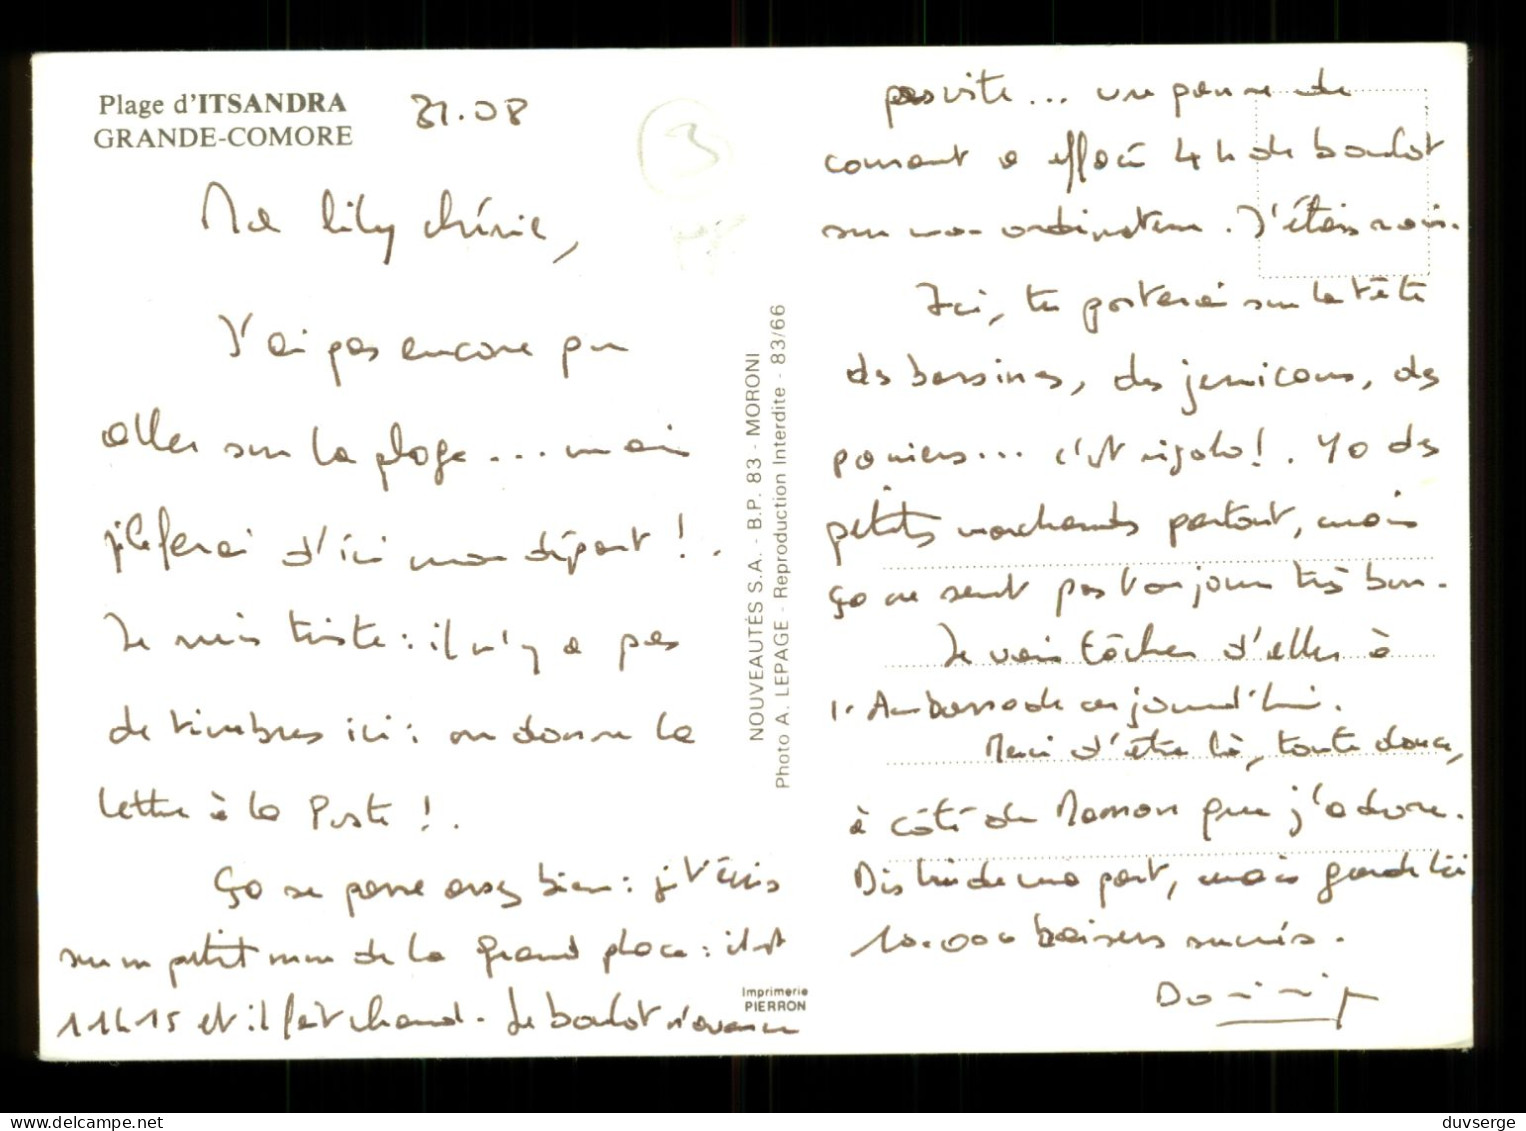 Plage d'ITSANDRA
GRANDE-COMORE
31.08
3
Ma Lily chérie,
J'ai pas encore pu
aller sur la plage... mais
je le ferai d'ici mon départ !.
Je suis triste : il n'y a pas
de timbres ici : on donne la
lettre à la Poste !.
Ça se passe assez bien : je t'écris
sur un petit mur de la grand place : il est
11h15 et il fait chaud. Le boulot n'avance
pas vite... une panne de
courant a effacé 4 h de boulot
sur mon ordinateur. J'étais
Ici, tu porterai sur la tête
des bassines, des jerricans, des
paniers... c'est rigolo !. Y a des
petits marchands partout, mais
ça ne sent pas toujours très bon.
Je vais tâcher d'aller à
l'Ambassade aujourd'hui.
Merci d'être là, toute douce,
à côté de Maman que j'adore.
Dis lui de ma part, mais garde lui
10.000 baisers sucrés.
NOUVEAUTÉS S.A. - B.P. 83 - MORONI
Photo A. LEPAGE - Reproduction Interdite - 83/66
Imprimerie
PIERRON
delcampe.net
duvserge